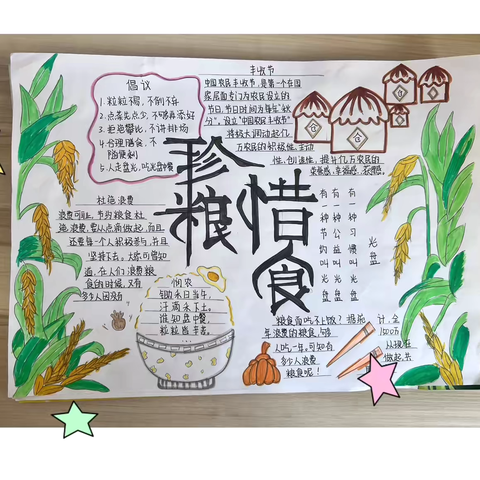 倡议
1.粒粒不易,不剩不弃
2.点菜先点少,不够再添好
3.拒绝攀比,不讲排场
4.合理膳食,不
5.人走盘光,吃光盘中餐
丰收节
中国农民丰收节,是第一个在国
家层面专门为农民设立的
节日,节日时间为每年“秋
分”。设立“中国农民丰收节”
将极大调动起亿
万农民的积极性、主动
性、创造性,提升亿万农民的
荣誉感、幸福感、获得感。
仓
仓
仓
珍惜粮食
有一种节约叫光盘
有一种公益叫光盘
有一种习惯叫光盘
光盘
杜绝浪费
浪费可耻,节约粮食杜
绝浪费,要从点滴做起,而且
还要每个人积极参与,并且
坚持下去。大家可曾知
道,在人们浪费粮
食的时候,又有
多少人因为
悯农
锄禾日当午,
汗滴禾下土。
谁知盘中餐,
粒粒皆辛苦。
粮食而吃不上饭?据统计,全
年浪费的粮食,够
人吃一年,可知有
多少人浪费
粮食呢!
从现在
做起,共